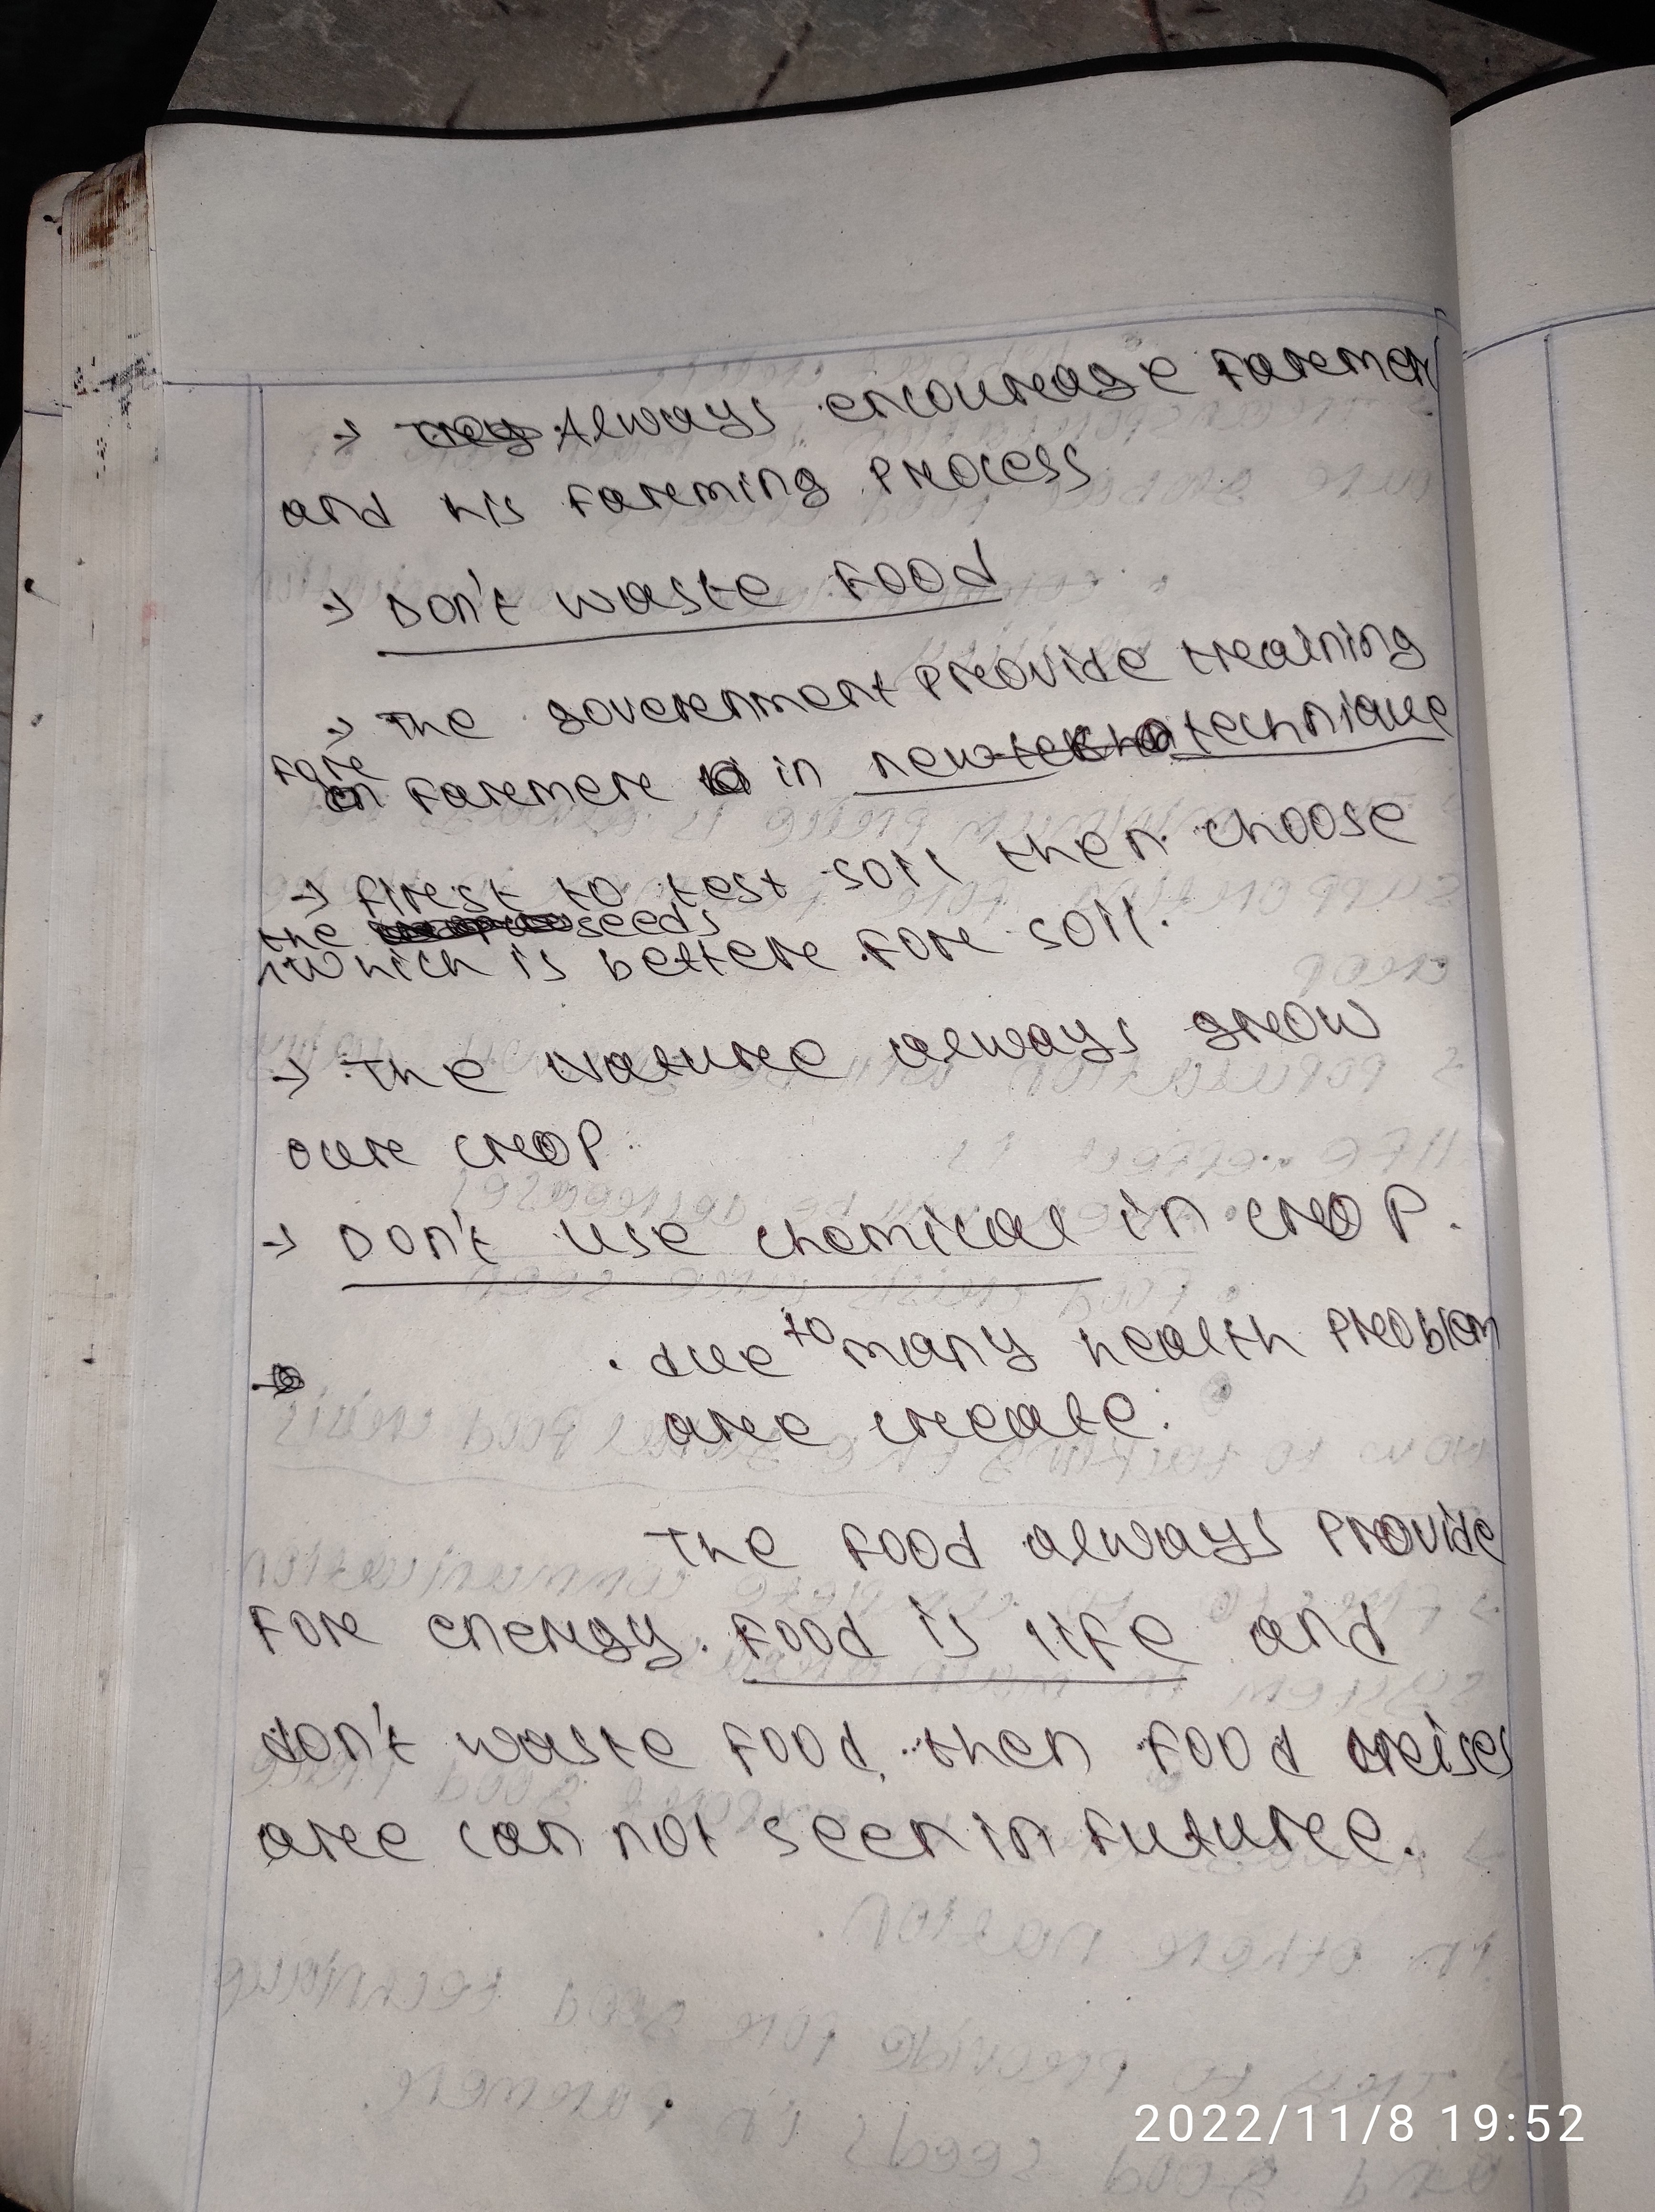 → Always encourage farmer
and his farming process
→ Don't waste food
→ The government provide training
for farmer in new technique
→ first to test soil then choose
the seeds
which is better for soil.
→ The Nature always grow
our crop.
→ Don't use chemical in crop.
. due to many health problem
are create.
The food always provide
for energy. Food is life and
don't waste food, then food crises
are can not seen in future.
2022/11/8 19:52